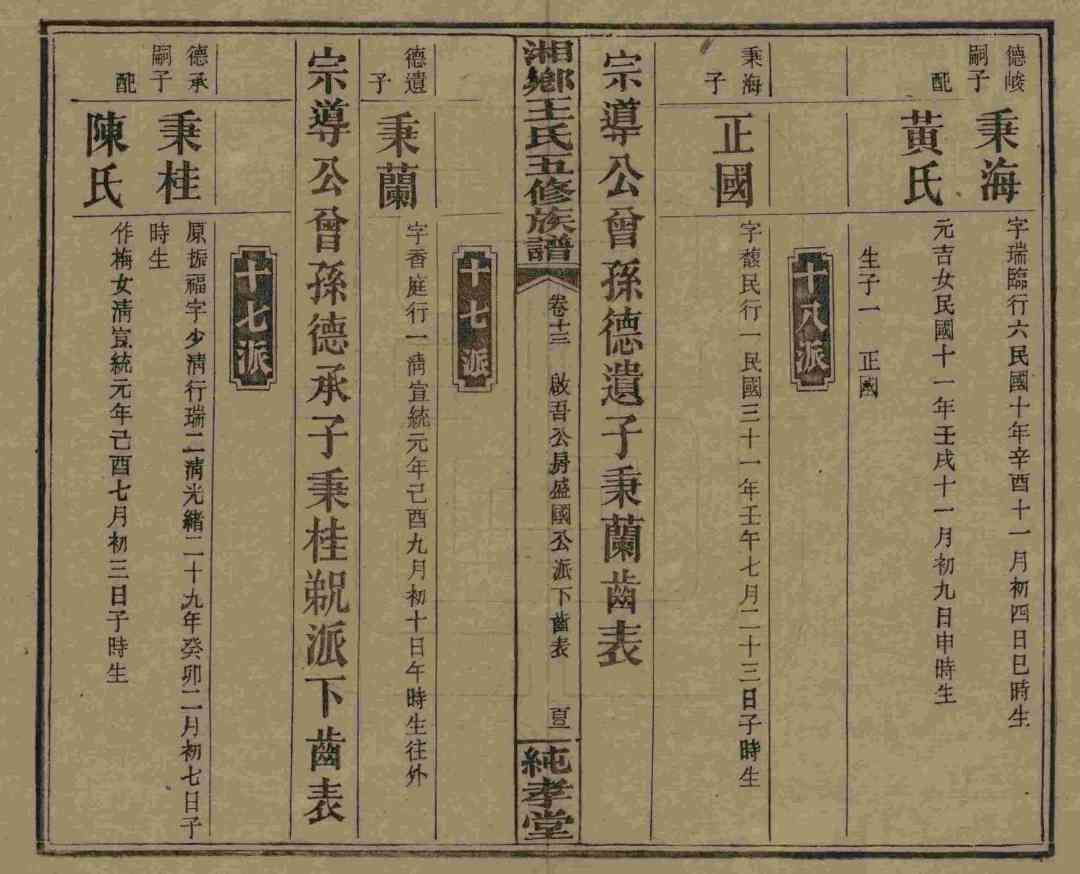 德峻
嗣子
秉海
字瑞臨行六民國十年辛酉十一月初四日巳時生
配
黃氏
元吉女民國十一年壬戌十一月初九日申時生
生子一 正國
十八派
秉海
子
正國
字馥民行一民國三十一年壬午七月二十三日子時生
宗導公曾孫德遺子秉蘭齒表
湘鄉王氏五修族譜
卷十三
啟吾公房盛國公派下齒表
純孝堂
十七派
德遺
子
秉蘭
字香庭行一清宣統元年己酉九月初十日午時生往外
宗導公曾孫德承子秉桂繼派下齒表
十七派
德承
嗣子
秉桂
原振福字少清行瑞二清光緒二十九年癸卯二月初七日子
時生
配
陳氏
作梅女清宣統元年己酉七月初三日子時生